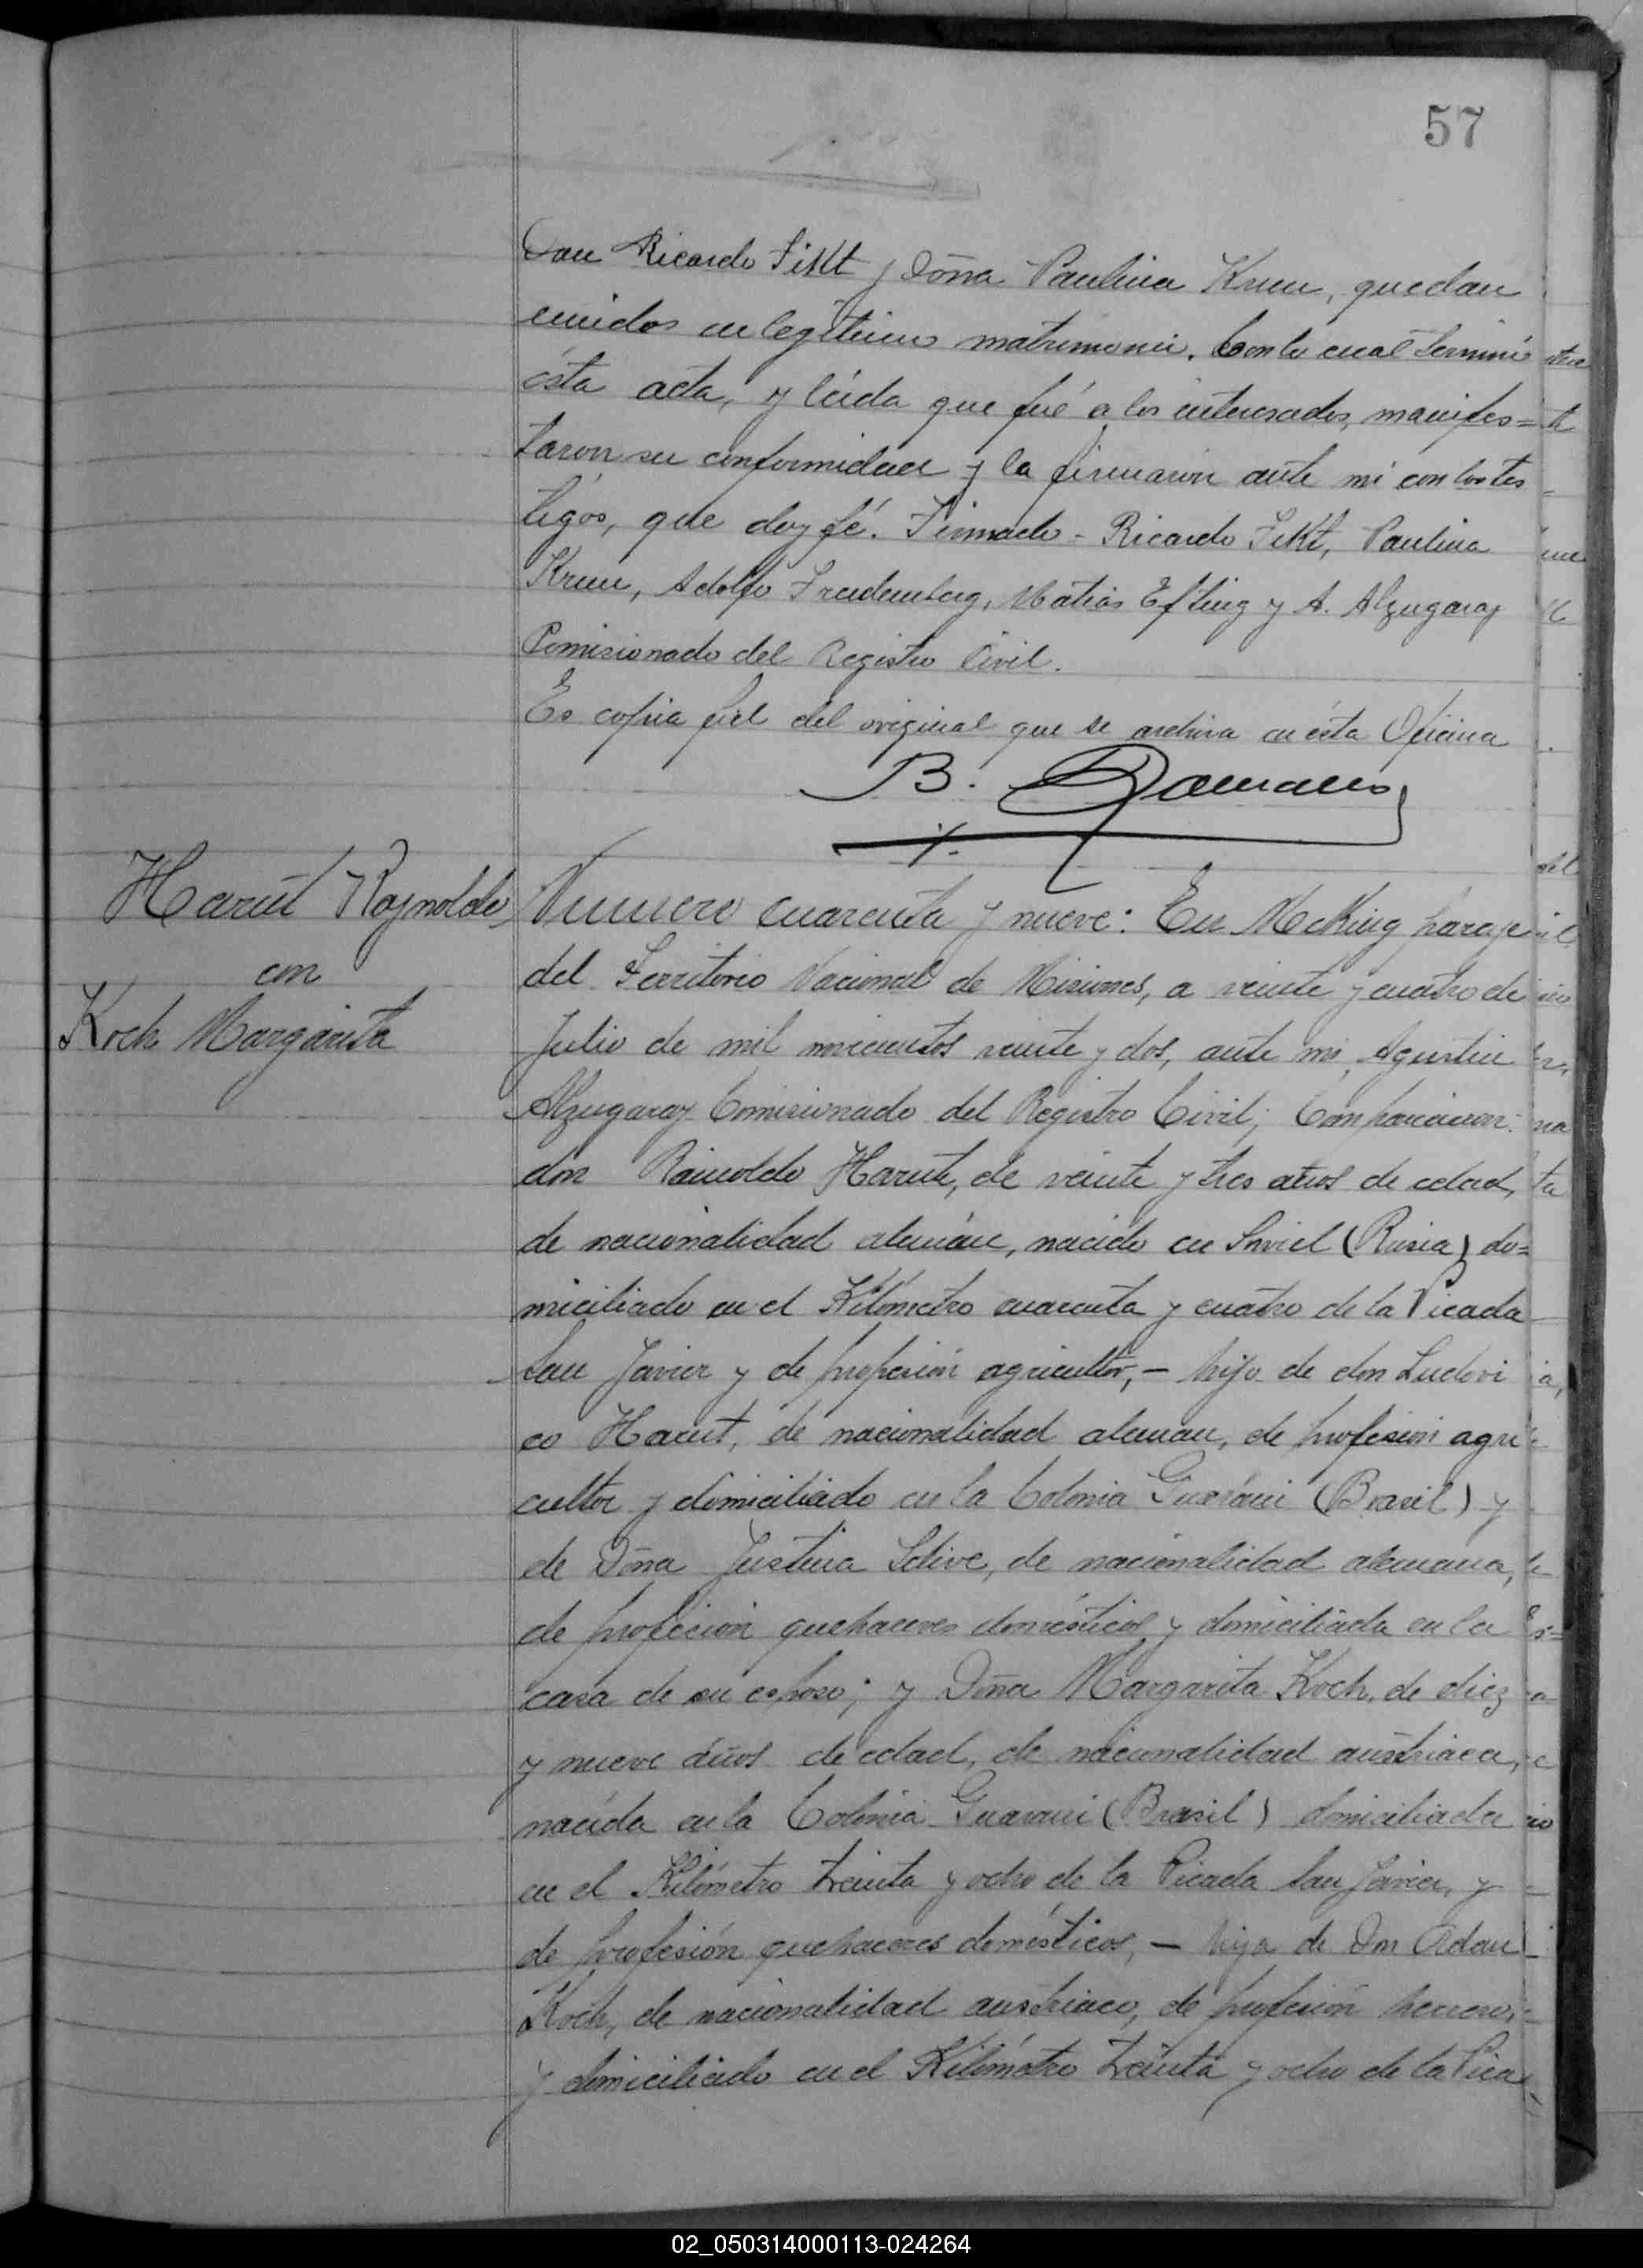 57
Don Ricardo Fikt y Doña Paulina Krum, quedan
unidos en legítimo matrimonio. Con lo cual terminó
ésta acta, y leída que fué a los interesados, manifes=
taron su conformidad y la firmaron ante mi con los tes
tigos, que doy fé. Firmado - Ricardo Fikt, Paulina
Krum, Adolfo Freudemberg, Matias Efting y A. Alzugaray
Comisionado del Registro Civil.
Es copia fiel del original que se archiva en ésta Oficina
B.
Harut Raynoldo
con
Koch Margarita
Numero cuarenta y nueve: En Mecking paraje
del Territorio Nacional de Misiones, a veinte y cuatro de
Julio de mil novecientos veinte y dos, ante mi, Agustin
Alzugaray Comisionado del Registro Civil; Comparecieron:
don Rainoldo Harut, de veinte y tres años de edad,
de nacionalidad alemán, nacido en (Rusia) do=
miciliado en el Kilómetro cuarenta y cuatro de la Picada
San Javier y de profesión agricultor, - hijo de don Ludovi
co Harut, de nacionalidad aleman, de profesión agri
cultor y domiciliado en la Colonia Guaraní (Brasil) y
de Doña Justina de nacionalidad alemana,
de profesión quehaceres domésticos y domiciliada en la
casa de su esposo; y Doña Margarita Koch, de diez
y nueve años de edad, de nacionalidad austriaca,
nacida en la Colonia Guarani (Brasil) domiciliada
en el Kilómetro treinta y ocho de la Picada San Javier, y
de profesión quehaceres domésticos, - hija de Don Adan
Koch, de nacionalidad austriaco, de profesión herrero,
y domiciliado en el Kilómetro treinta y ocho de la Pica
02_050314000113-024264